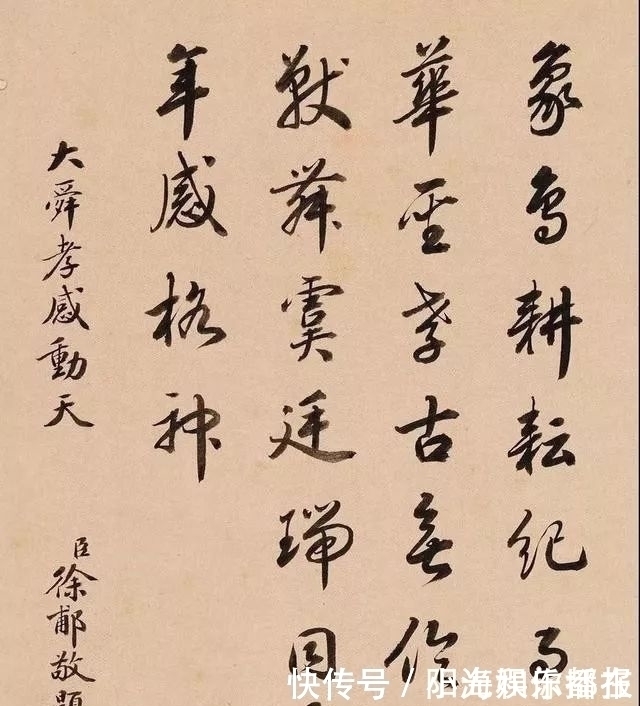 象鳥耕耘紀
華至孝古無倫
獸舞虞廷瑞
年感格神
大舜孝感動天
臣徐郙敬題
快传号 /